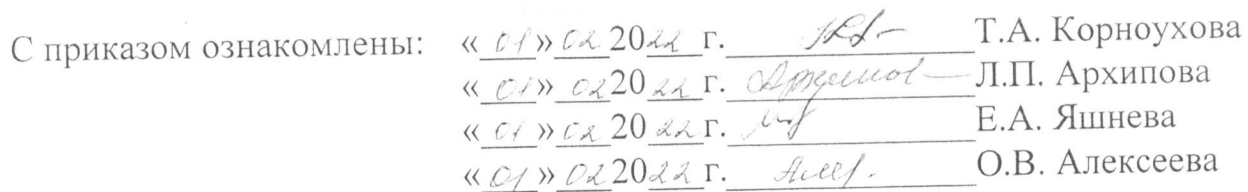 С приказом ознакомлены: « 01 » 02 2022 г. Т.А. Корноухова
« 01 » 02 2022 г. Л.П. Архипова
« 01 » 02 2022 г. Е.А. Яшнева
« 01 » 02 2022 г. О.В. Алексеева